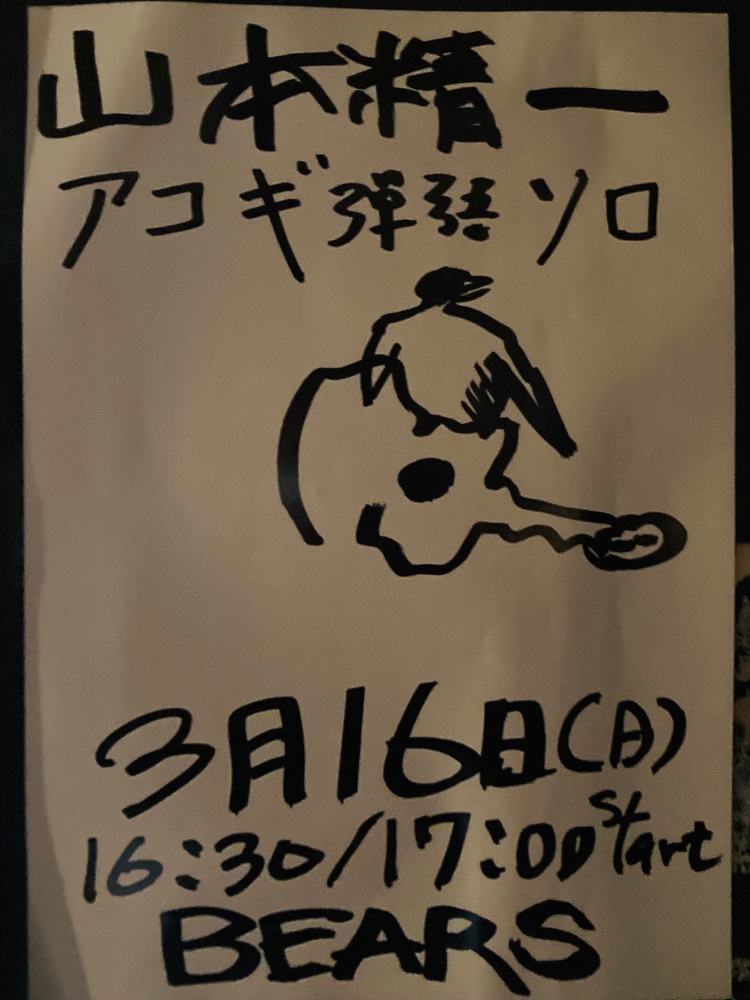 山本精一
アコギ弾語ソロ
3月16日(日)
16:30/17:00 start
BEARS